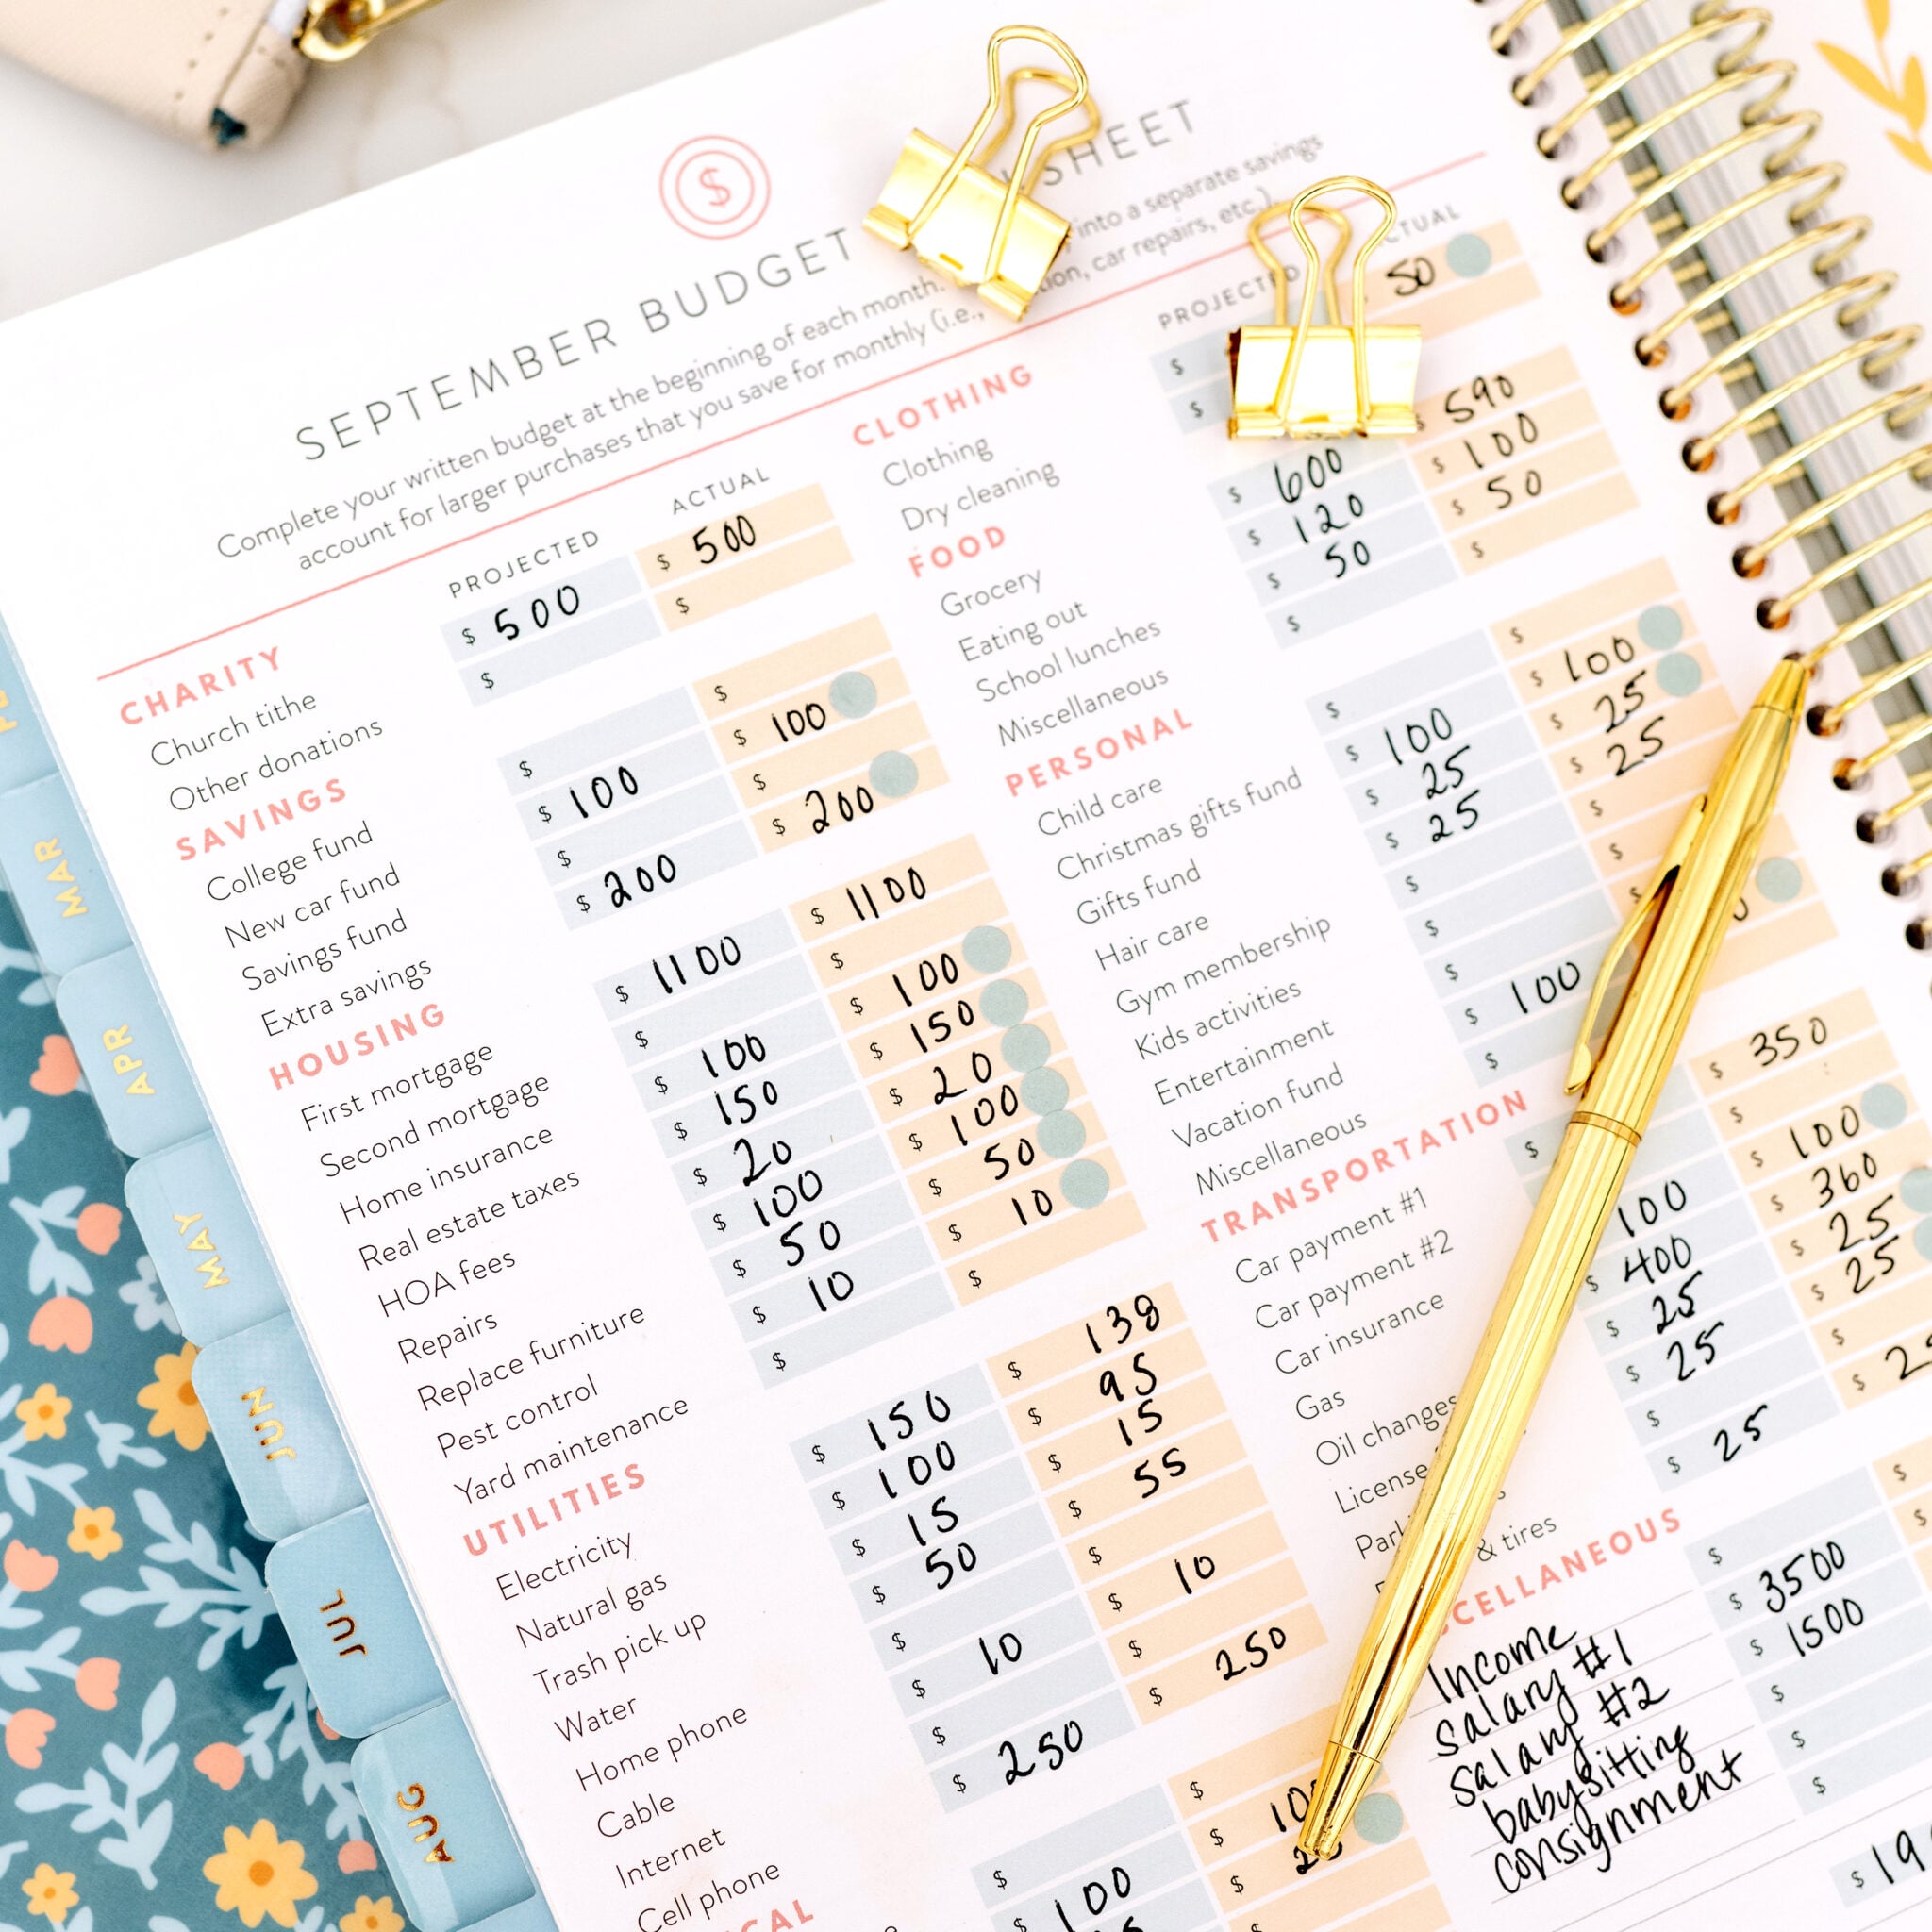 SEPTEMBER BUDGET SHEET
Complete your written budget at the beginning of each month. into a separate savings
account for larger purchases that you save for monthly (i.e., car repairs, etc.).
PROJECTED ACTUAL
CHARITY
Church tithe $ 500 $ 500
Other donations $ $
SAVINGS
College fund $ $
New car fund $ 100 $ 100
Savings fund $ $
Extra savings $ 200 $ 200
HOUSING
First mortgage $ 1100 $ 1100
Second mortgage $ $
Home insurance $ 100 $ 100
Real estate taxes $ 150 $ 150
HOA fees $ 20 $ 20
Repairs $ 100 $ 100
Replace furniture $ 50 $ 50
Pest control $ 10 $ 10
Yard maintenance $ $
UTILITIES
Electricity $ 150 $ 138
Natural gas $ 100 $ 95
Trash pick up $ 15 $ 15
Water $ 50 $ 55
Home phone $ $
Cable $ 10 $ 10
Internet $ $
Cell phone $ 250 $ 250
$ $
$ 100 $
PROJECTED
CLOTHING
Clothing $ 50
Dry cleaning $
FOOD
Grocery $ 600 $ 590
Eating out $ 120 $ 100
School lunches $ 50 $ 50
Miscellaneous $ $
PERSONAL
Child care $ $
Christmas gifts fund $ 100 $ 100
Gifts fund $ 25 $ 25
Hair care $ 25 $ 25
Gym membership $ $
Kids activities $ $
Entertainment $ $
Vacation fund $ 100
Miscellaneous $
TRANSPORTATION
Car payment #1 $ 350
Car payment #2 $ $
Car insurance 100 $ 100
Gas $ 400 $ 360
Oil changes $ 25 $ 25
License $ 25 $ 25
$ $
& tires $ 25 $
Income $ $
salary #1 $ 3500 $
salary #2 $ 1500
babysitting $
consignment $
$
MAR
APR
MAY
JUN
JUL
AUG